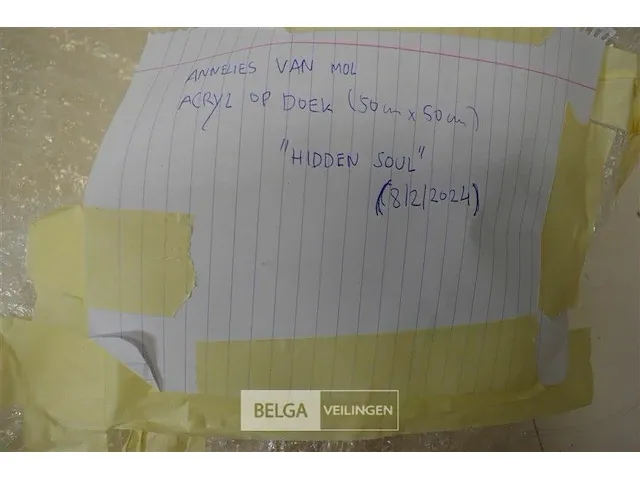 ANNELIES VAN MOL
ACRYL OP DOEK (50cm x 50cm)
"HIDDEN SOUL"
(8/2/2024)
BELGA VEILINGEN